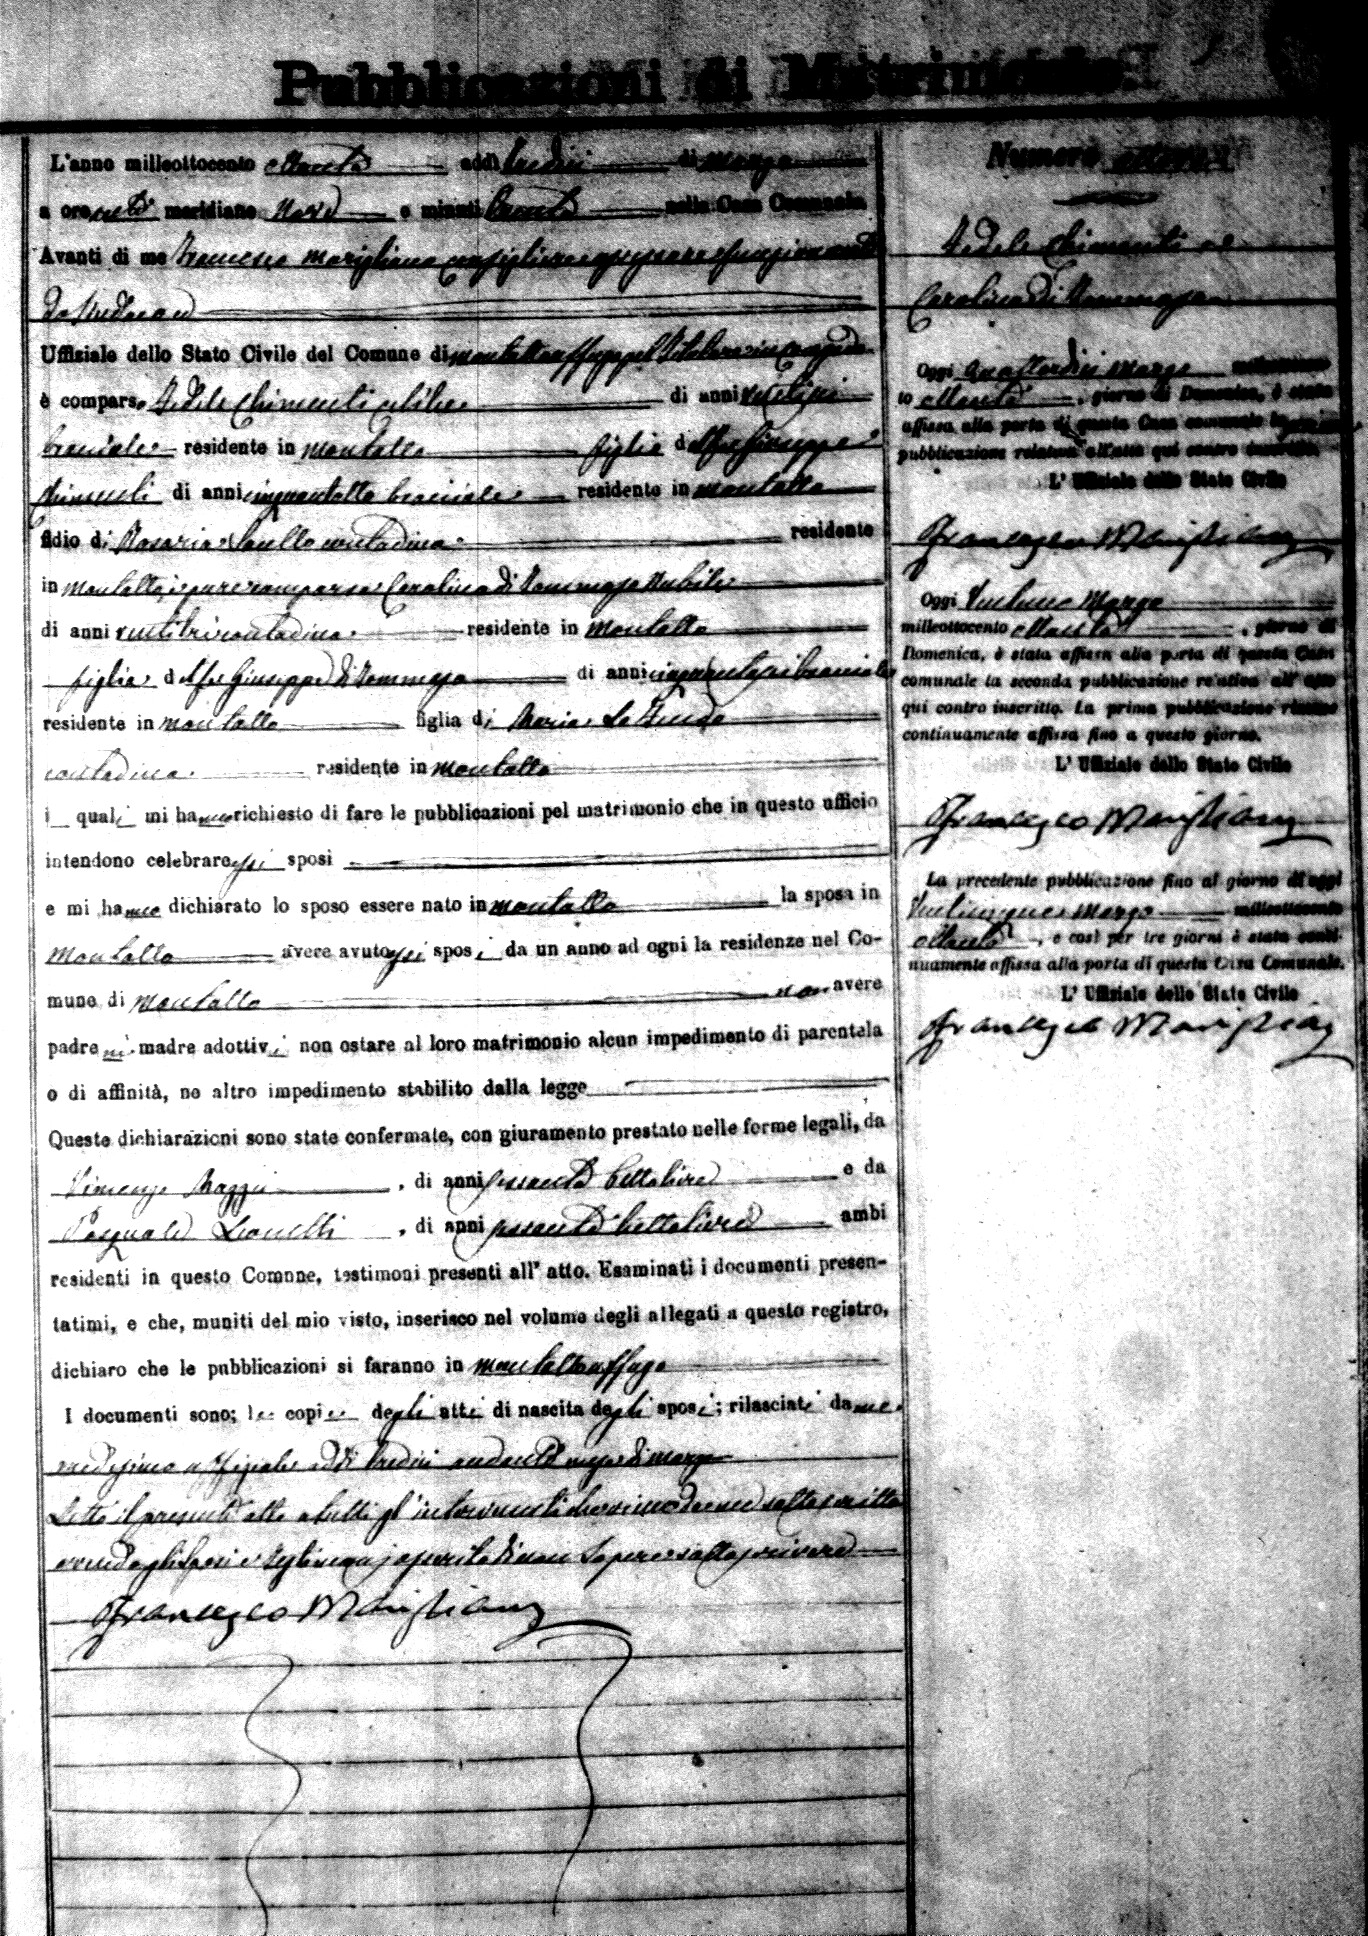 Pubblicazioni di Matrimonio
L'anno milleottocento ottanta addì tredici di marzo
a ore anti meridiane nove e minuti trenta nella Casa Comunale
Avanti di me Francesco Marigliano consigliere assessore funzionante
da Sindaco
Uffiziale dello Stato Civile del Comune di montaltouffugo
è compars. Fedele Chimenti celibe di anni ventisei
bracciale residente in montalto figlio di Giuseppe
Chimenti di anni cinquantotto bracciale residente in montalto
e di Rosaria contadina residente
in montalto è pure comparsa Carolina di Tommaso nubile
di anni ventitre contadina residente in montalto
figlia di Giuseppe di Tommaso di anni bracciale
residente in montalto figlia di Maria
contadina residente in montalto
i quali mi hanno richiesto di fare le pubblicazioni pel matrimonio che in questo ufficio
intendono celebrare essi sposi
e mi hanno dichiarato lo sposo essere nato in montalto la sposa in
montalto avere avuto essi sposi da un anno ad ogni la residenze nel Co-
mune di montalto non avere
padre ni madre adottivi non ostare al loro matrimonio alcun impedimento di parentela
o di affinità, no altro impedimento stabilito dalla legge
Queste dichiarazioni sono state confermate, con giuramento prestato nelle forme legali, da
Vincenzo , di anni sessanta bettoliere e da
Pasquale , di anni sessanta bettoliere ambi
residenti in questo Comnne, testimoni presenti all' atto. Esaminati i documenti presen-
tatimi, e che, muniti del mio visto, inserisco nel volume degli allegati a questo registro,
dichiaro che le pubblicazioni si faranno in montaltouffugo
I documenti sono; le copie degli atti di nascita degli sposi; rilasciati da me
medesimo uffiziale addì tredici andante mese di marzo
Letto il presente atto a tutti gl'intervenuti sottoscritto
avendo gli sposi e testimoni asserito di non sapere sottoscrivere
Francesco Marigliano
Numero ottavo
Fedele Chimenti e
Carolina di Tommaso
Oggi quattordici marzo milleottocen-
to ottanta , giorno di Domenica, è stata
affissa alla porta di questa Casa comunale la prima
pubblicazione relativa all'atto qui contro inscritto.
L' Uffiziale dello Stato Civile
Francesco Marigliano
Oggi ventuno Marzo
milleottocento ottanta , giorno di
Domenica, è stata affissa alla porta di questa Casa
comunale la seconda pubblicazione relativa all' atto
qui contro inscritto. La prima pubblicazione rimase
continuamente affissa fino a questo giorno.
L' Uffiziale dello Stato Civile
Francesco Marigliano
La precedente pubblicazione fino al giorno di oggi
venticinque marzo milleottocento
ottanta , e così per tre giorni è stata conti-
nuamente affissa alla porta di questa Casa Comunale.
L' Uffiziale dello Stato Civile
Francesco Marigliano